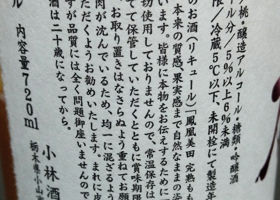 桃、醸造アルコール、糖類、吟醸酒
ル分／5%以上6%未満
限／冷蔵5℃以下、未開栓にて製造年
のお酒（リキュール）「鳳凰美田 完熟もも
本来の質感、果実感まで自然なままの姿
います。皆様に本物をお伝えするために
切使用しておりませんので、常温保存は
てで保管していただくとともに賞味期限
お取り置きはなさらぬよう重ねてお願い
肉が沈んでいるため、均一に混ざるよう
ただくようお勧めいたします。まれに皮
すが品質には全く問題御座いませんので
酒は二十歳になってから。
ル 内容量720ml
小林酒
栃木県小山